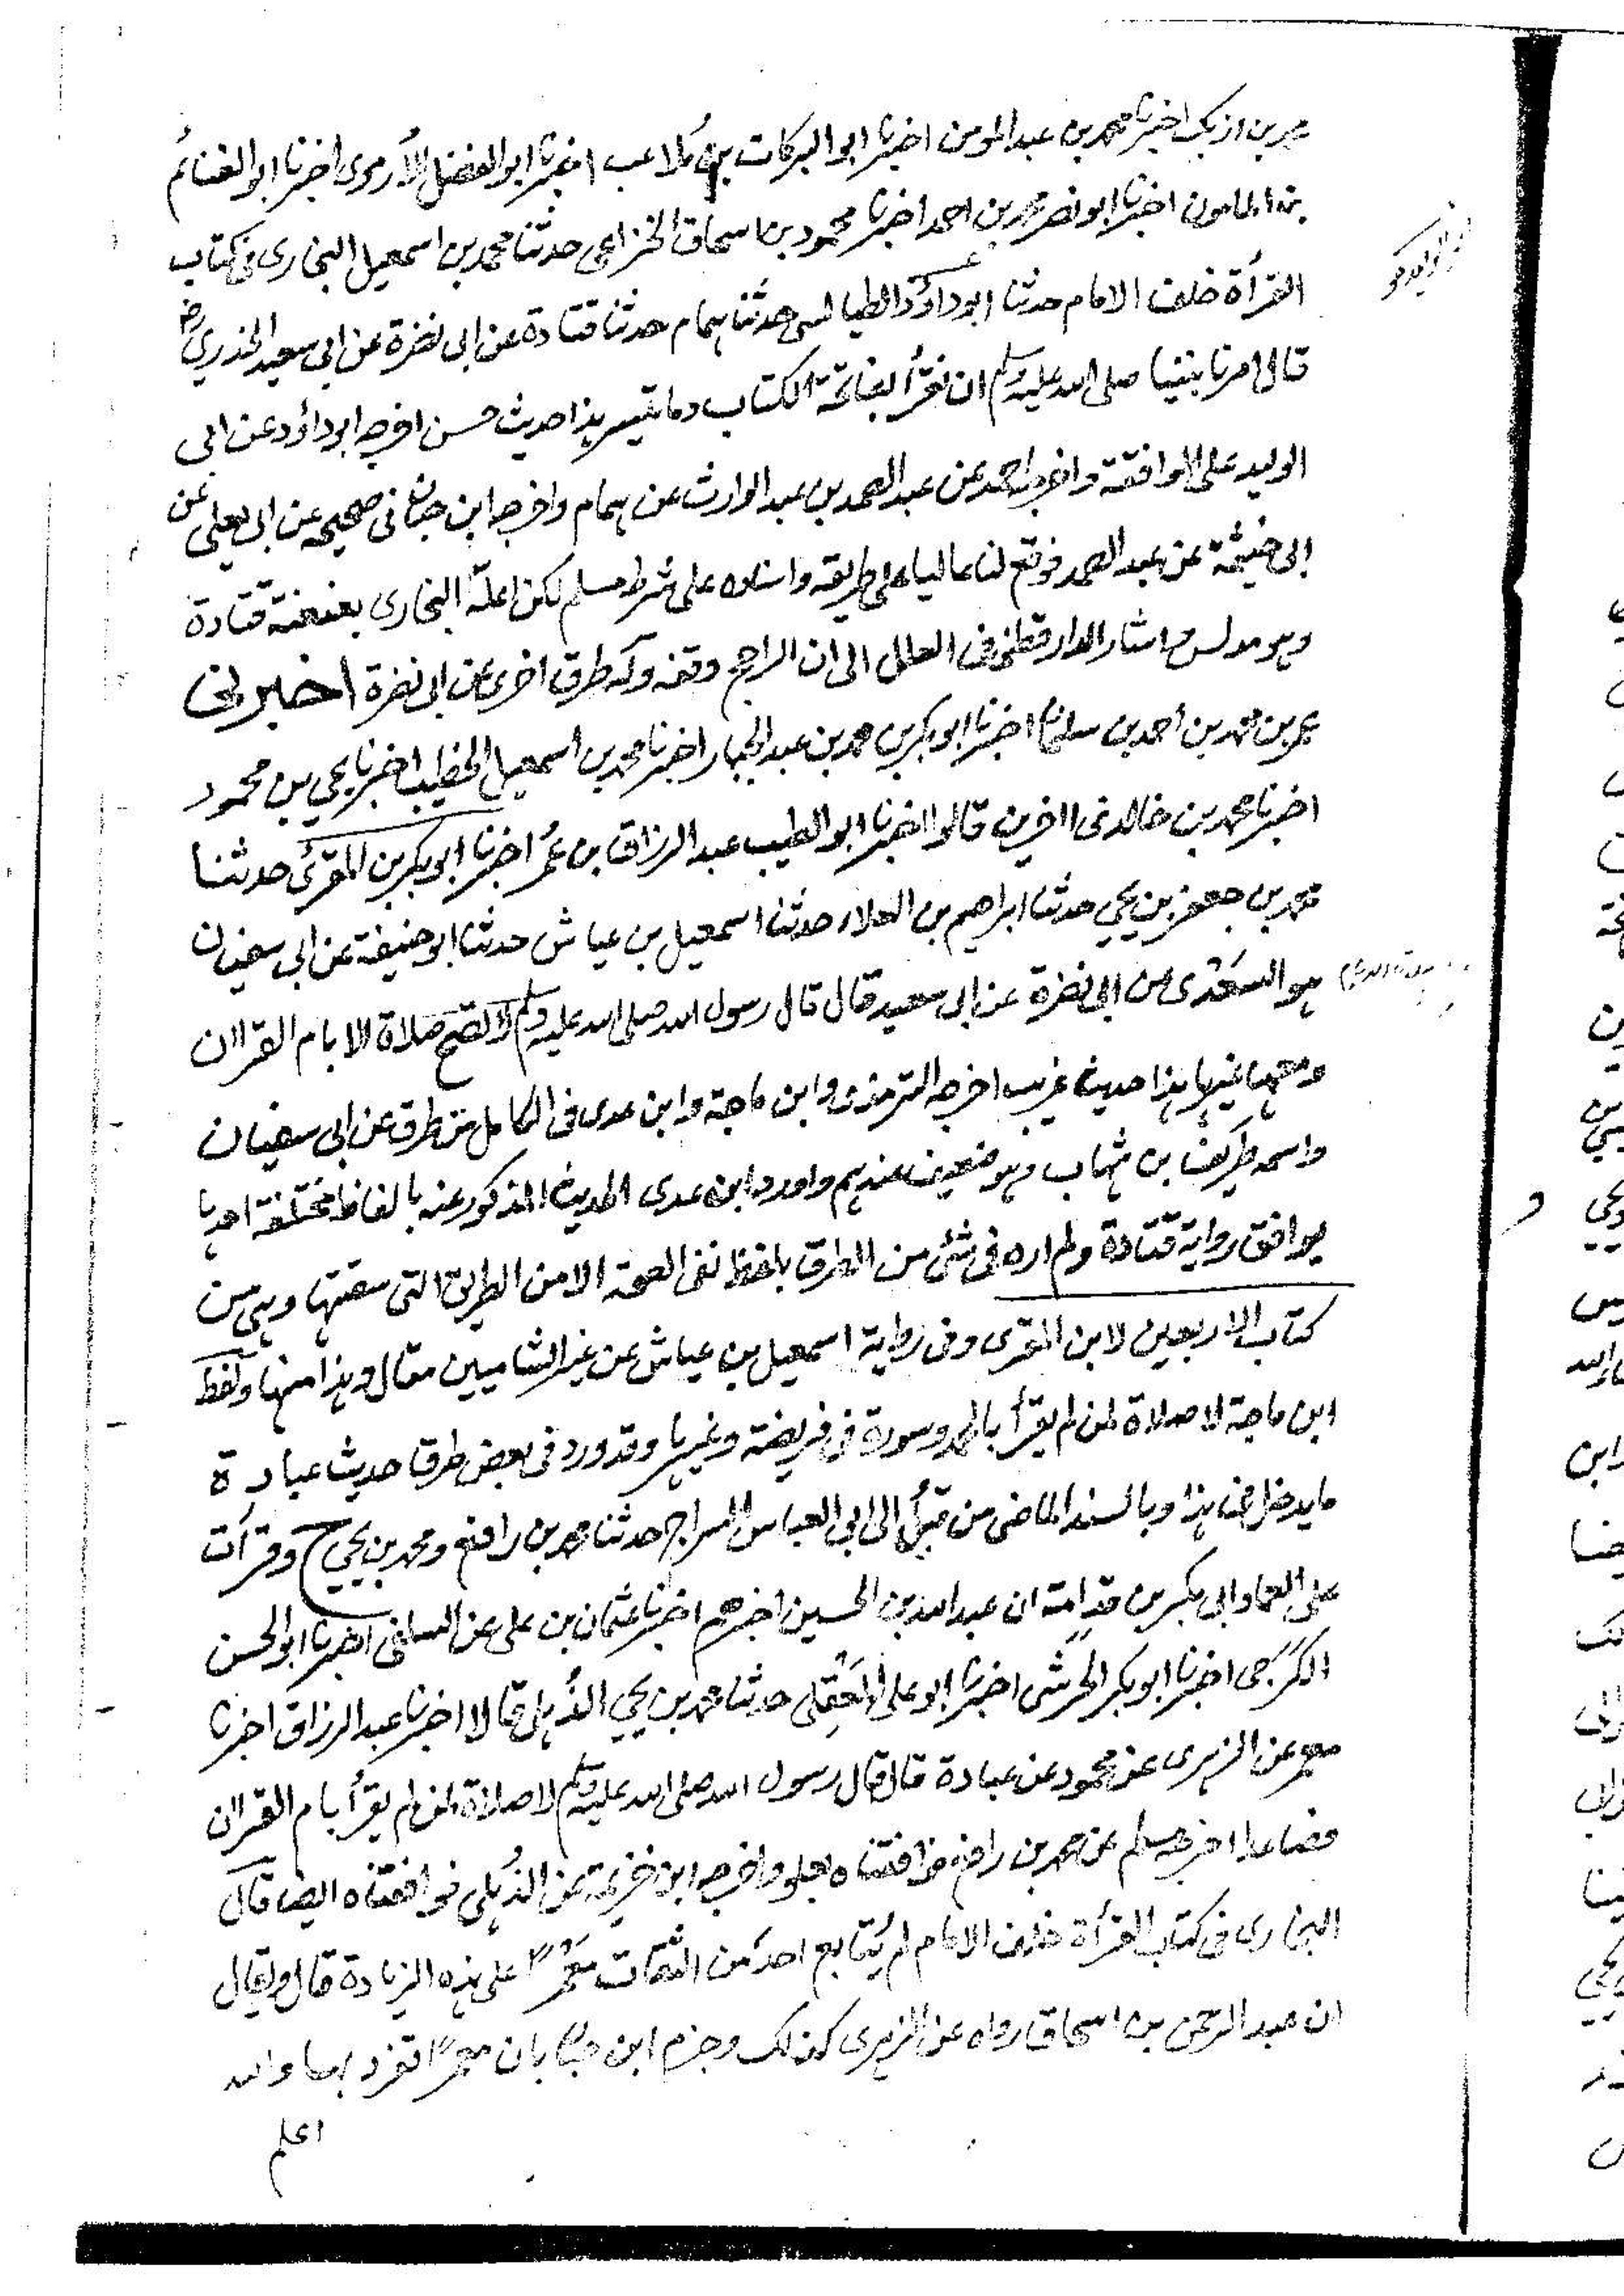 محمد بن ازبك اخبرنا محمد بن عبد المومن اخبرنا ابو البركات بن مُلاعب اخبرنا ابو الفضل الاُرموى اخبرنا ابو الغنائم
بن المامون اخبرنا ابو نصر محمد بن احمد اخبرنا محمود بن اسحاق الخزاعى حدثنا محمد بن اسمعيل البخارى فى كتاب
القرأة خلف الامام حدثنا ابو داؤد الطيالسى حدثنا همام حدثنا قتادة عن ابى نضرة عن ابى سعيد الخدرىؓ
قال امرنا نبينا صلى الله عليه وسلم ان نقرأ بفاتحة الكتاب وما تيسر هذا حديث حسن اخرجه ابو داؤد عن ابى
الوليد على الموافقة واخرجه احمد عن عبد الصمد بن عبد الوارث عن همام واخرجه ابن حبان فى صحيحه عن ابى يعلى عن
ابى خيثمة عن عبد الصمد فوقع لنا عاليا على طريقه واسناده على شرط مسلم لكن اعلّه البخارى بعنعنة قتادة
وهو مدلس و اشار الدارقطنى فى العلل الى ان الراجح وقفه وله طرق اخرى عن ابى نضرة اخبرنى
عمر بن محمد بن احمد بن سلمان اخبرنا ابو بكر بن محمد بن عبد الجبار اخبرنا محمد بن اسمعيل الخطيب اخبرنا يحيى بن محمود
اخبرنا محمد بن خالد فى اخرين قالوا اخبرنا ابو الطيب عبد الرزاق بن عُمر اخبرنا ابو بكر بن المقرئ حدثنا
محمد بن جعفر بن يحيى حدثنا ابراهيم بن العلاء حدثنا اسمعيل بن عياش حدثنا ابو حنيفة عن ابى سفيان
هو السَعْدى عن ابى نضرة عن ابى سعيد قال قال رسول الله صلى الله عليه وسلم لا تصح صلاة الا بام القران
ومعها غيرها هذا حديث غريب اخرجه الترمذى وابن ماجة وابن عدى فى الكامل من طرق عن ابى سفيان
واسمه طريف بن شهاب وهو ضعيف عندهم واورد ابن عدى الحديث المذكور عنه بالفاظ مختلفة احدها
يوافق رواية قتادة ولم اره فى شئ من الطرق بلفظ نفى الصحة الا من الطريق التى سقتها وهى من
كتاب الاربعين لابن المقرى وفى رواية اسمعيل بن عياش عن غير الشاميين مقال وهذا منها ولفظ
ابن ماجة لا صلاة لمن لم يقرأ بالحمد وسورة فى فريضة وغيرها وقد ورد فى بعض طرق حديث عبادة
ما يدخل هنا هذا وبالسند الماضى من قبلُ الى ابى العباس السراج حدثنا محمد بن رافع ومحمد بن يحيى ح وقرأت
على العماد ابى بكر بن قدامة ان عبد الله بن الحسين اخبرهم اخبرنا عثمان بن على عن السلفى اخبرنا ابو الحسن
الكرَجى اخبرنا ابو بكر الحَرشى اخبرنا ابو على المَعْقِلى حدثنا محمد بن يحيى الذُهلى قالا اخبرنا عبد الرزاق اخبرنا
معمر عن الزهرى عن محمود عن عبادة قال قال رسول الله صلى الله عليه وسلم لا صلاة لمن لم يقرأ بام القران
فصاعدا اخرجه مسلم عن محمد بن رافع فوافقناه بعلو واخرجه ابن خزيمة عن الذُهلى فوافقناه ايضا قال
البخارى فى كتاب القرأة خلف الامام لم يُتابع احد من الثقات مَعْمَرًا على هذه الزيادة قال ويقال
ان عبد الرحمن بن اسحاق رواه عن الزهرى كذلك وجزم ابن حبان بان معمرًا تفرد بها والله
اعلم